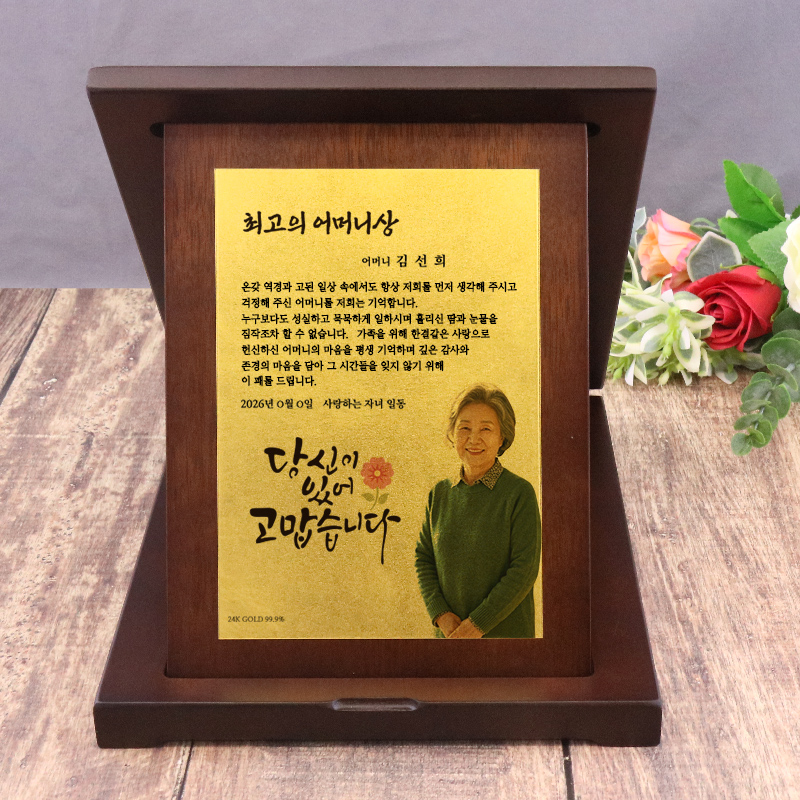 최고의 어머니상
어머니 김 선 희
온갖 역경과 고된 일상 속에서도 항상 저희를 먼저 생각해 주시고
걱정해 주신 어머니를 저희는 기억합니다.
누구보다도 성실하고 묵묵하게 일하시며 흘리신 땀과 눈물을
짐작조차 할 수 없습니다. 가족을 위해 한결같은 사랑으로
헌신하신 어머니의 마음을 평생 기억하며 깊은 감사와
존경의 마음을 담아 그 시간들을 잊지 않기 위해
이 패를 드립니다.
2026년 0월 0일 사랑하는 자녀 일동
당신이
있어
고맙습니다
24K GOLD 99.9%